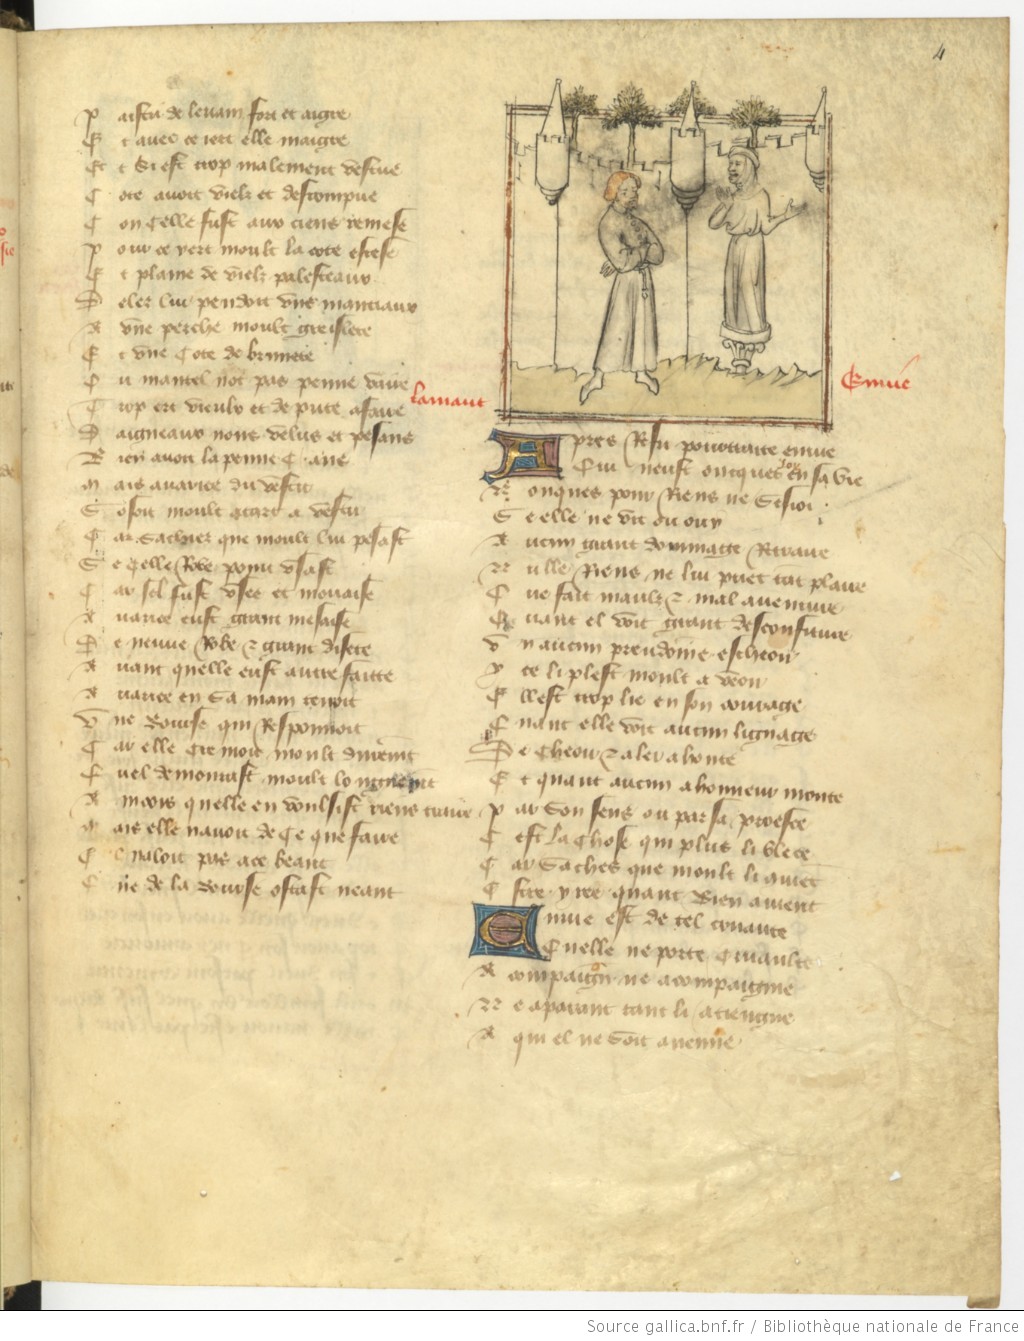 4
P aistri de levain fort et aigre
E t avec ce iert elle maigre
Et Si est trop malement vestue
C ote avoit vielz et desrompue
C on Celle fust aux ciens remese
P our ce yert moult la cote escese
E t plaine de vielz palesteaux
D elez lui pendoit uns manteaux
A une perche moult greislete
E t une Cote de brunete
O u mantel not pas penne vaire
T rop ert vieulx et de pute afaire
D aigneaux noirs velus et pesans
B ien avoit la penne C ans
M ais avarice du vestir
S osoit moult a tart a vestir
C ar Sachiez que moult lui pesast
S e celle Robe point usast
C ar sel fust usee et mauvaise
A varice eust grant mesaise
D e neuve Robe et grant disete
A vant quelle eust autre faitte
A varice en Sa main tenoit
U ne bourse qui Responnoit
C ar elle Cremoit moult durement
Q uel demourast moult longuement
A incois quelle en voulsist riens traire
M ais elle navoit de Ce que faire
E l naloit pas a ce beant
Que de la bourse ostast neant
lamant
Envie
A pres Refu pourtraite envie
Qui neust oncques Joy en sa vie
N oncques pour Riens ne Sesjoi
S e elle ne vit ou ouy
A ucun grant dommage Retraire
N ulle Riens ne lui puet tant plaire
C ne fait maulz et mal aventure
Q uant el voit grant desconfiture
U n aucun preudomme escheoir
Y ce li plest moult a veoir
E llest trop lie en son courage
Q uant elle voit aucun lignage
D e Cheoir et aler a honte
E t quant aucun a honneur monte
P ar Son sens ou par sa proesce
C est la Chose qui plus li blece
C ar Saches que moult li avient
E stre yree quant Bien avient
E nvie est de tel cruaute
Quelle ne porte Loiaulte
A compaignon ne a compaigne
N e a parant tant li atiengne
A qui el ne Soit anemie
Source gallica.bnf.fr / Bibliothèque nationale de France